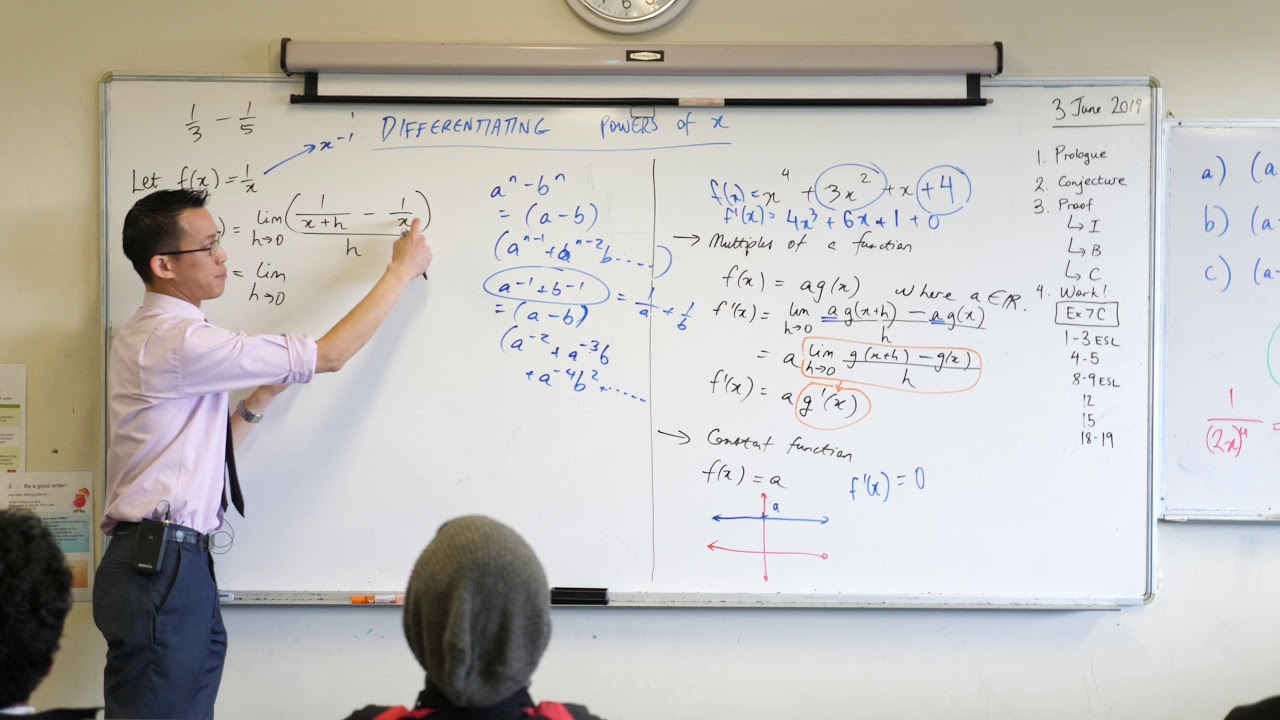 AUSTRALIS
1/3 - 1/5
x⁻¹
DIFFERENTIATING POWERS of x
Let f(x) = 1/x
) = lim h→0 (1/(x+h) - 1/x) / h
= lim h→0
aⁿ - bⁿ
= (a-b)
(aⁿ⁻¹ + aⁿ⁻²b.....)
a⁻¹ + b⁻¹ = 1/a + 1/b
= (a-b)
(a⁻² + a⁻³b
+ a⁻⁴b² + ......
f(x) = x⁴ + 3x² + x + 4
f'(x) = 4x³ + 6x + 1 + 0
→ Multiples of a function
f(x) = ag(x) where a ∈ ℝ.
f'(x) = lim h→0 (ag(x+h) - ag(x)) / h
= a lim h→0 (g(x+h) - g(x)) / h
f'(x) = a g'(x)
→ Constant function
f(x) = a f'(x) = 0
a
3 June 2019
1. Prologue
2. Conjecture
3. Proof
↳ I
↳ B
↳ C
4. Work!
Ex 7C
1-3 ESL
4-5
8-9 ESL
12
15
18-19
a) (a
b) (a
c) (a-
1/(2x)⁴ =
3. Be a good writer!